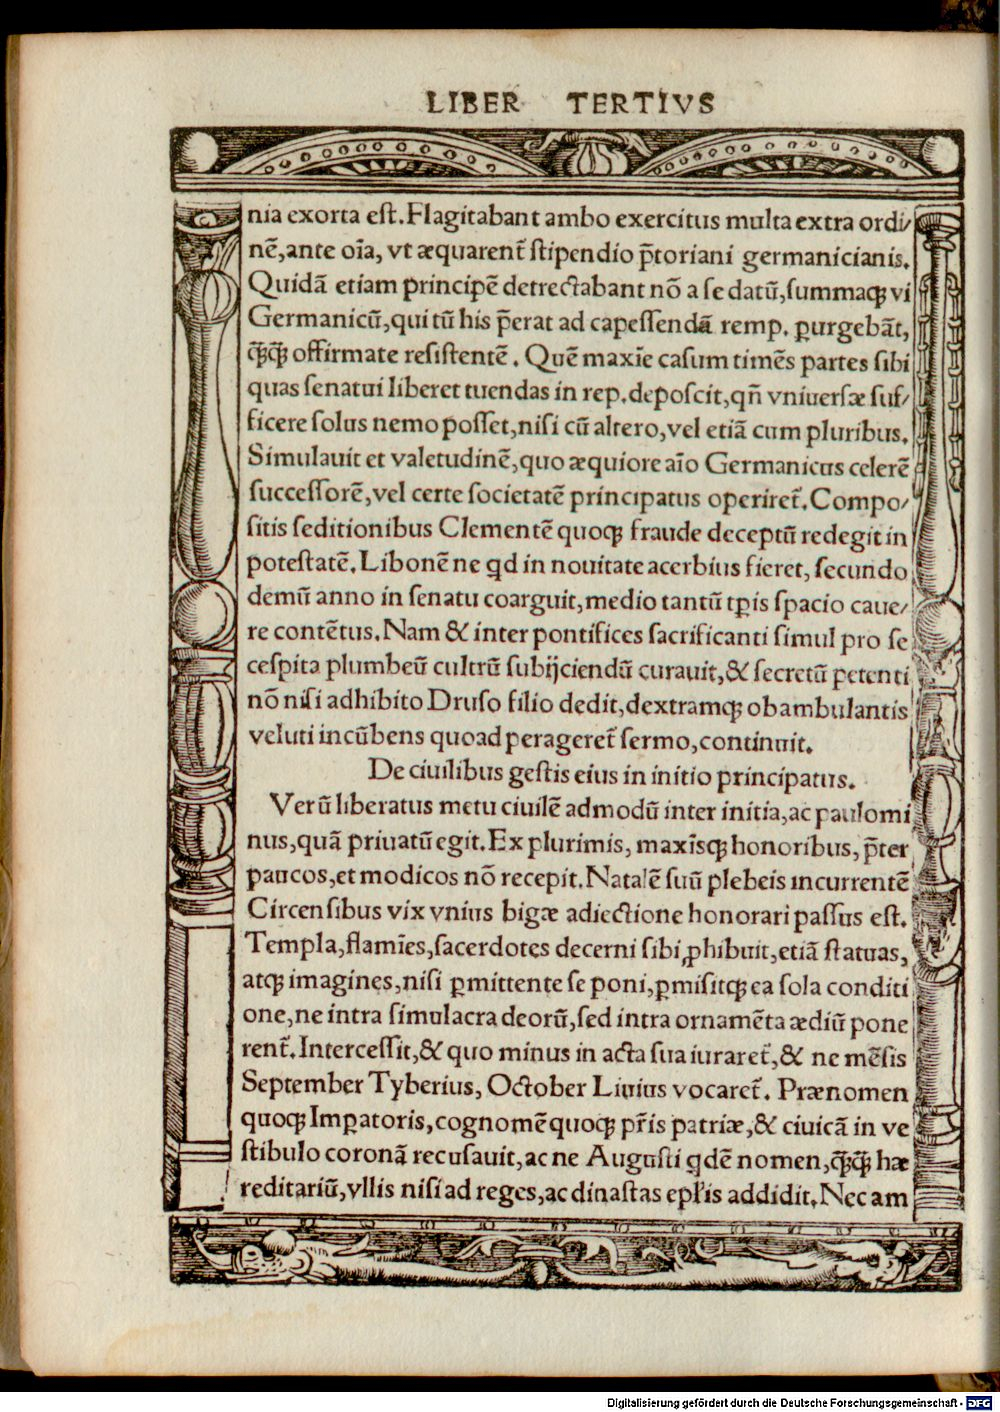 LIBER TERTIVS
nia exorta est. Flagitabant ambo exercitus multa extra ordi⸗
nē, ante oīa, vt æquarent᷑ stipendio p̄toriani germanicianis.
Quidā etiam principē detrectabant nō a se datū, summaqꝫ vi
Germanicū, qui tū his p̄erat ad capessendā remp. ꝑurgebāt,
q̄ꝫq̄ꝫ offirmate resistentē. Quē maxīe casum timēs partes sibi
quas senatui liberet tuendas in rep. deposcit, qn̄ vniuersæ suf⸗
ficere solus nemo posset, nisi cū altero, vel etiā cum pluribus.
Simulauit et valetudinē, quo æquiore aīo Germanicus celerē
successorē, vel certe societatē principatus operiret᷑. Compo⸗
sitis seditionibus Clementē quoqꝫ fraude deceptū redegit in
potestatē. Libonē ne qd in nouitate acerbius fieret, secundo
demū anno in senatu coarguit, medio tantū tꝑis spacio caue⸗
re contētus. Nam & inter pontifices sacrificanti simul pro se
cespita plumbeū cultrū subijciendū curauit, & secretū petenti
nō nisi adhibito Druso filio dedit, dextramqꝫ obambulantis
veluti incūbens quoad perageret᷑ sermo, continuit.
De ciuilibus gestis eius in initio principatus.
Verū liberatus metu ciuilē admodū inter initia, ac paulomi
nus, quā priuatū egit. Ex plurimis, maxīsqꝫ honoribus, p̄ter
paucos, et modicos nō recepit. Natalē suū plebeis incurrentē
Circensibus vix vnius bigæ adiectione honorari passus est.
Templa, flamīes, sacerdotes decerni sibi ꝓhibuit, etiā statuas,
atqꝫ imagines, nisi ꝑmittente se poni, ꝑmisitqꝫ ea sola conditi
one, ne intra simulacra deorū, sed intra ornamēta ædiū pone
rent᷑. Intercessit, & quo minus in acta sua iuraret᷑, & ne mēsis
September Tyberius, October Liuius vocaret᷑. Prænomen
quoqꝫ Imꝑatoris, cognomē quoqꝫ pr̄is patriæ, & ciuicā in ve
stibulo coronā recusauit, ac ne Augusti qdē nomen, q̄ꝫq̄ꝫ hæ
reditariū, vllis nisi ad reges, ac dinastas epl̄is addidit. Nec am
Digitalisierung gefördert durch die Deutsche Forschungsgemeinschaft - DFG